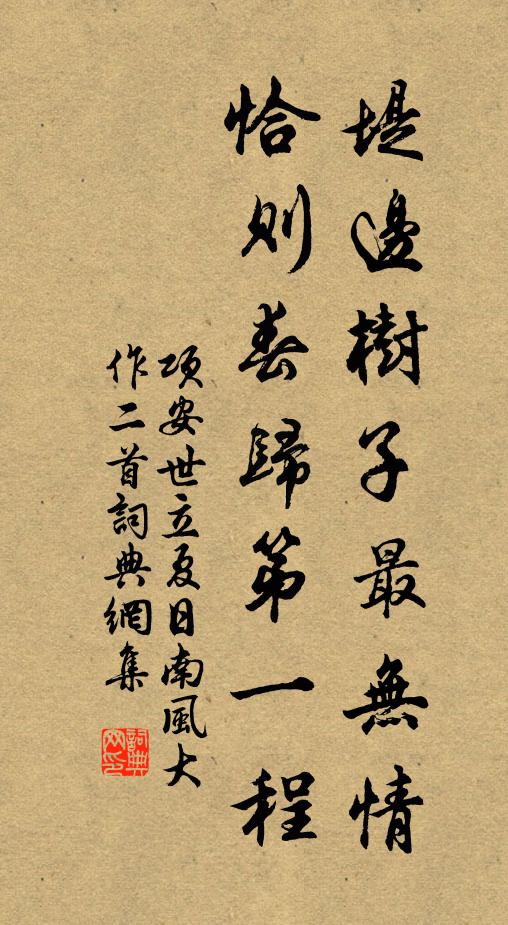 堤邊樹子最無情
恰則春歸第一程
項安世立夏日南風大
作二首詞典網集
詞典
网印